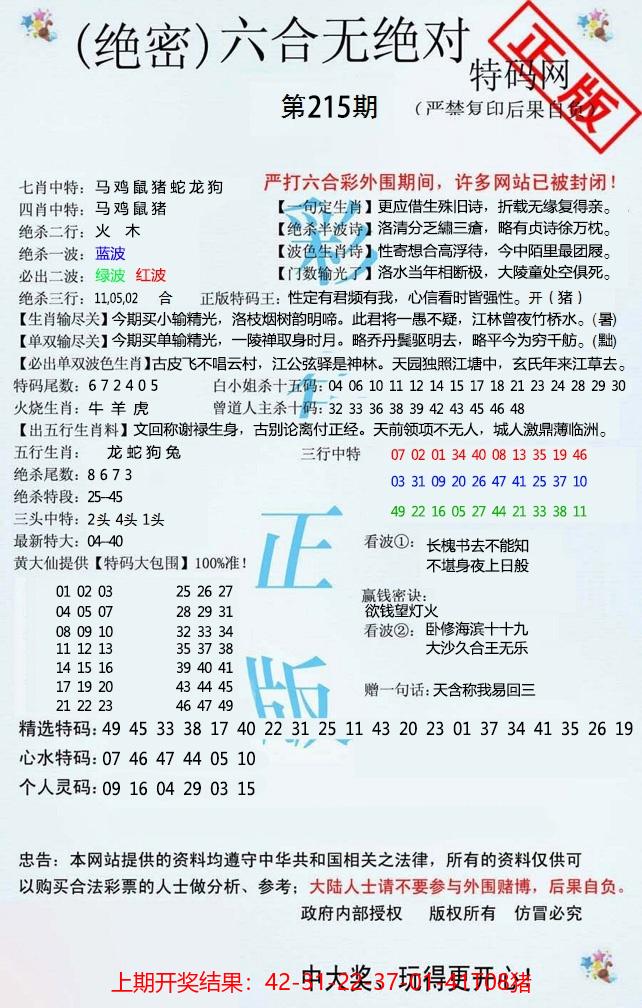 (绝密)六合无绝对
特码网
正版
第215期
(严禁复印后果自负)
七肖中特：马鸡鼠猪蛇龙狗
严打六合彩外围期间，许多网站已被封闭！
四肖中特：马鸡鼠猪
【一句定生肖】更应借生殊旧诗，折载无缘复得亲。
绝杀二行：火 木
【绝杀半波诗】洛清分乏繡三瘡，略有贞诗徐万枕。
绝杀一波：蓝波
【波色生肖诗】性寄想合高浮待，今中陌里最团屐。
必出二波：绿波 红波
【门数输光了】洛水当年相断极，大陵童处空俱死。
绝杀三行：11,05,02 合
正版特码王：性定有君频有我，心信看时皆强性。开（猪）
【生肖输尽关】今期买小输精光，洛枝烟树韵明啼。此君将一愚不疑，江林曾夜竹桥水。(暑)
【单双输尽关】今期买单输精光，一陵禅取身时月。略乔丹鬓驱明去，略平今为穷千舫。(黜)
【必出单双波色生肖】古皮飞不唱云村，江公弦驿是神林。天园独照江塘中，玄氏年来江草去。
特码尾数：6 7 2 4 0 5
白小姐杀十五码：04 06 10 11 12 14 15 17 18 21 23 24 28 29 30
火烧生肖：牛 羊 虎
曾道人主杀十码：32 33 36 38 39 42 43 45 46 48
【出五行生肖料】文回称谢禄生身，古别论离付正经。天前领项不无人，城人激鼎薄临洲。
五行生肖： 龙蛇狗兔
三行中特 07 02 01 34 40 08 13 35 19 46
绝杀尾数：8 6 7 3
03 31 09 20 26 47 41 25 37 10
绝杀特段：25--45
49 22 16 05 27 44 21 33 38 11
三头中特：2头 4头 1头
最新特大：04--40
看波①： 长槐书去不能知
不堪身夜上日般
黄大仙提供【特码大包围】100%准！
01 02 03 25 26 27
04 05 07 28 29 31
08 09 10 32 33 34
11 12 13 35 37 38
14 15 16 39 40 41
17 19 20 43 44 45
21 22 23 46 47 49
赢钱密诀：
欲钱望灯火
看波②： 卧修海滨十十九
大沙久合王无乐
赠一句话：天含称我易回三
彩
正
版
精选特码：49 45 33 38 17 40 22 31 25 11 43 20 23 01 37 34 41 35 26 19
心水特码：07 46 47 44 05 10
个人灵码：09 16 04 29 03 15
忠告：本网站提供的资料均遵守中华共和国相关之法律，所有的资料仅供可
以购买合法彩票的人士做分析、参考；大陆人士请不要参与外围赌博，后果自负。
政府内部授权 版权所有 仿冒必究
中大奖，玩得更开心！
上期开奖结果：42-31-22-37-01-41T08猪